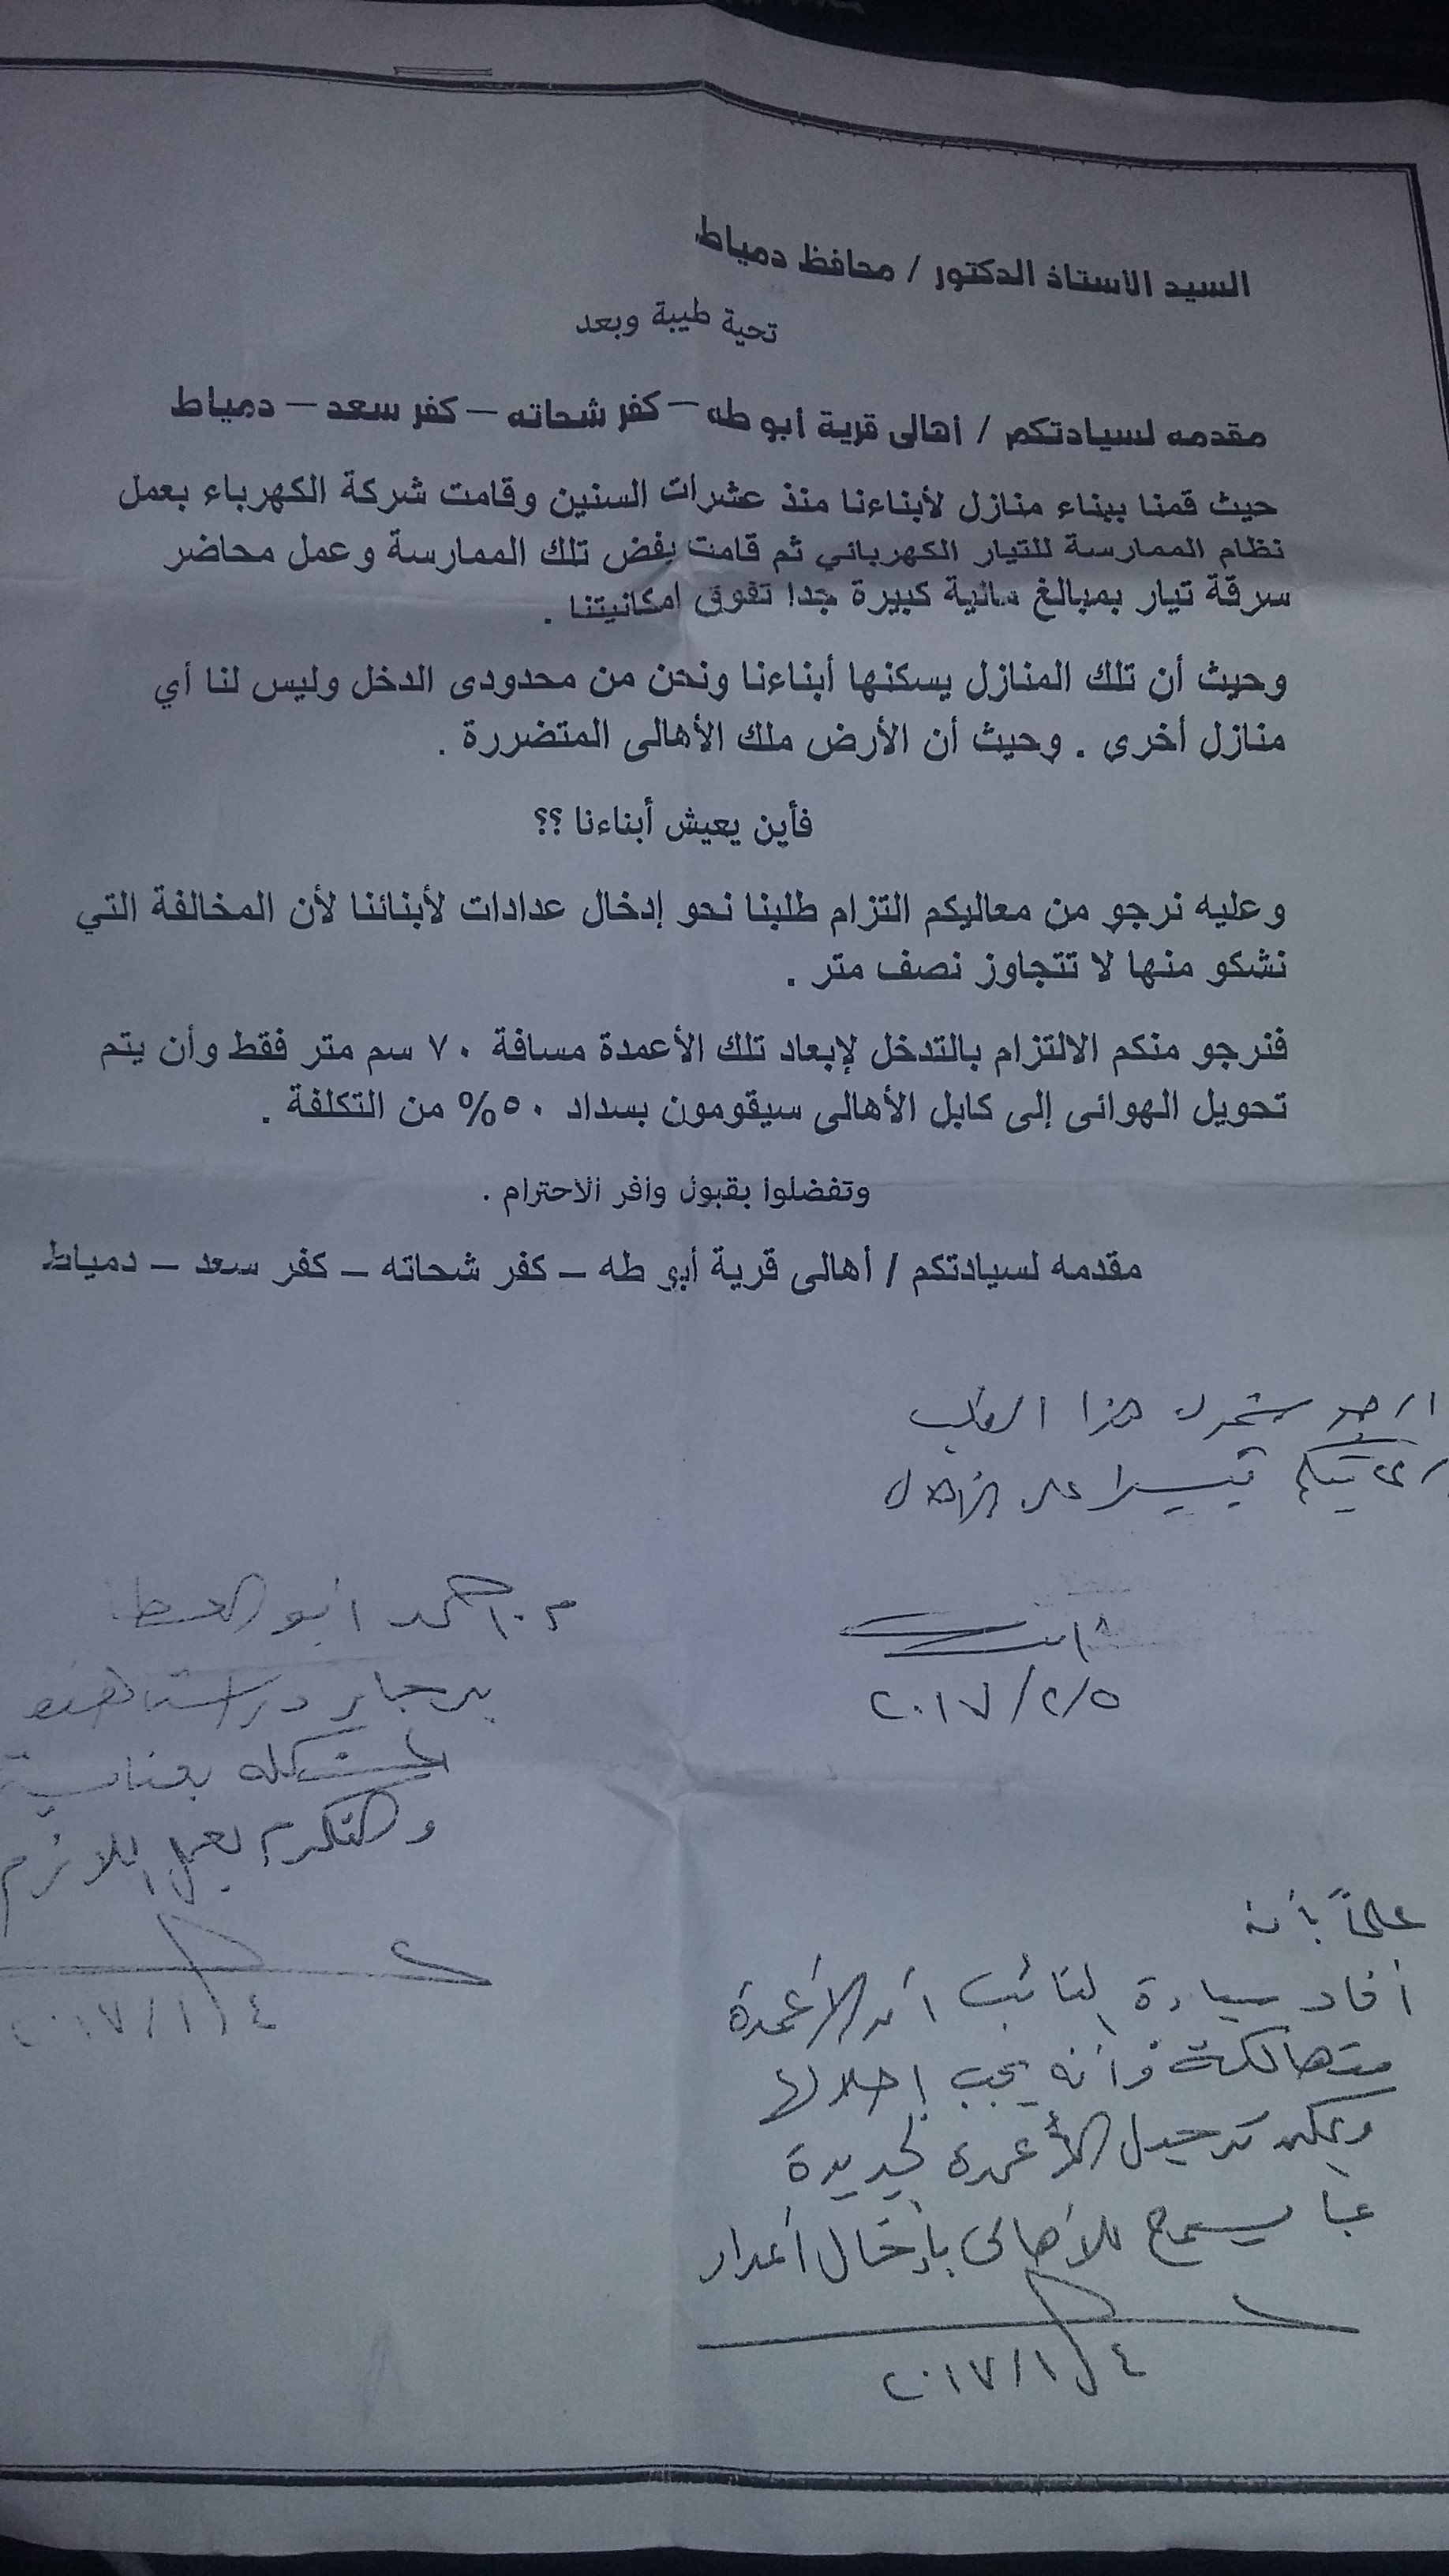 السيد الاستاذ الدكتور / محافظ دمياط
تحية طيبة وبعد
مقدمه لسيادتكم / أهالى قرية أبو طه – كفر شحاته – كفر سعد – دمياط
حيث قمنا ببناء منازل لأبناءنا منذ عشرات السنين وقامت شركة الكهرباء بعمل
نظام الممارسة للتيار الكهربائي ثم قامت بفض تلك الممارسة وعمل محاضر
سرقة تيار بمبالغ مالية كبيرة جدا تفوق امكانيتنا .
وحيث أن تلك المنازل يسكنها أبناءنا ونحن من محدودى الدخل وليس لنا أي
منازل أخرى . وحيث أن الأرض ملك الأهالى المتضررة .
فأين يعيش أبناءنا ؟؟
وعليه نرجو من معاليكم التزام طلبنا نحو إدخال عدادات لأبنائنا لأن المخالفة التي
نشكو منها لا تتجاوز نصف متر .
فنرجو منكم الالتزام بالتدخل لإبعاد تلك الأعمدة مسافة ٧٠ سم متر فقط وأن يتم
تحويل الهوائى إلى كابل الأهالى سيقومون بسداد ٥٠% من التكلفة .
وتفضلوا بقبول وافر الاحترام .
مقدمه لسيادتكم / أهالى قرية أبو طه – كفر شحاته – كفر سعد – دمياط
ارجو شمول هذا الطلب
برعايتكم تيسيرا على الأهالى
٢٠١٧/٢/٥
م. احمد ابو العطا
برجاء دراسة هذه
المشكلة بعناية
والتكرم بعمل اللازم
٢٠١٧/١/٤
علماً بأنه
أفاد سيادة النائب أن الأعمدة
متهالكة وأنه يجب إحلالها
ويمكن ترحيل الأعمدة الجديدة
بما يسمح للأهالى بإدخال
٢٠١٧/١/٤